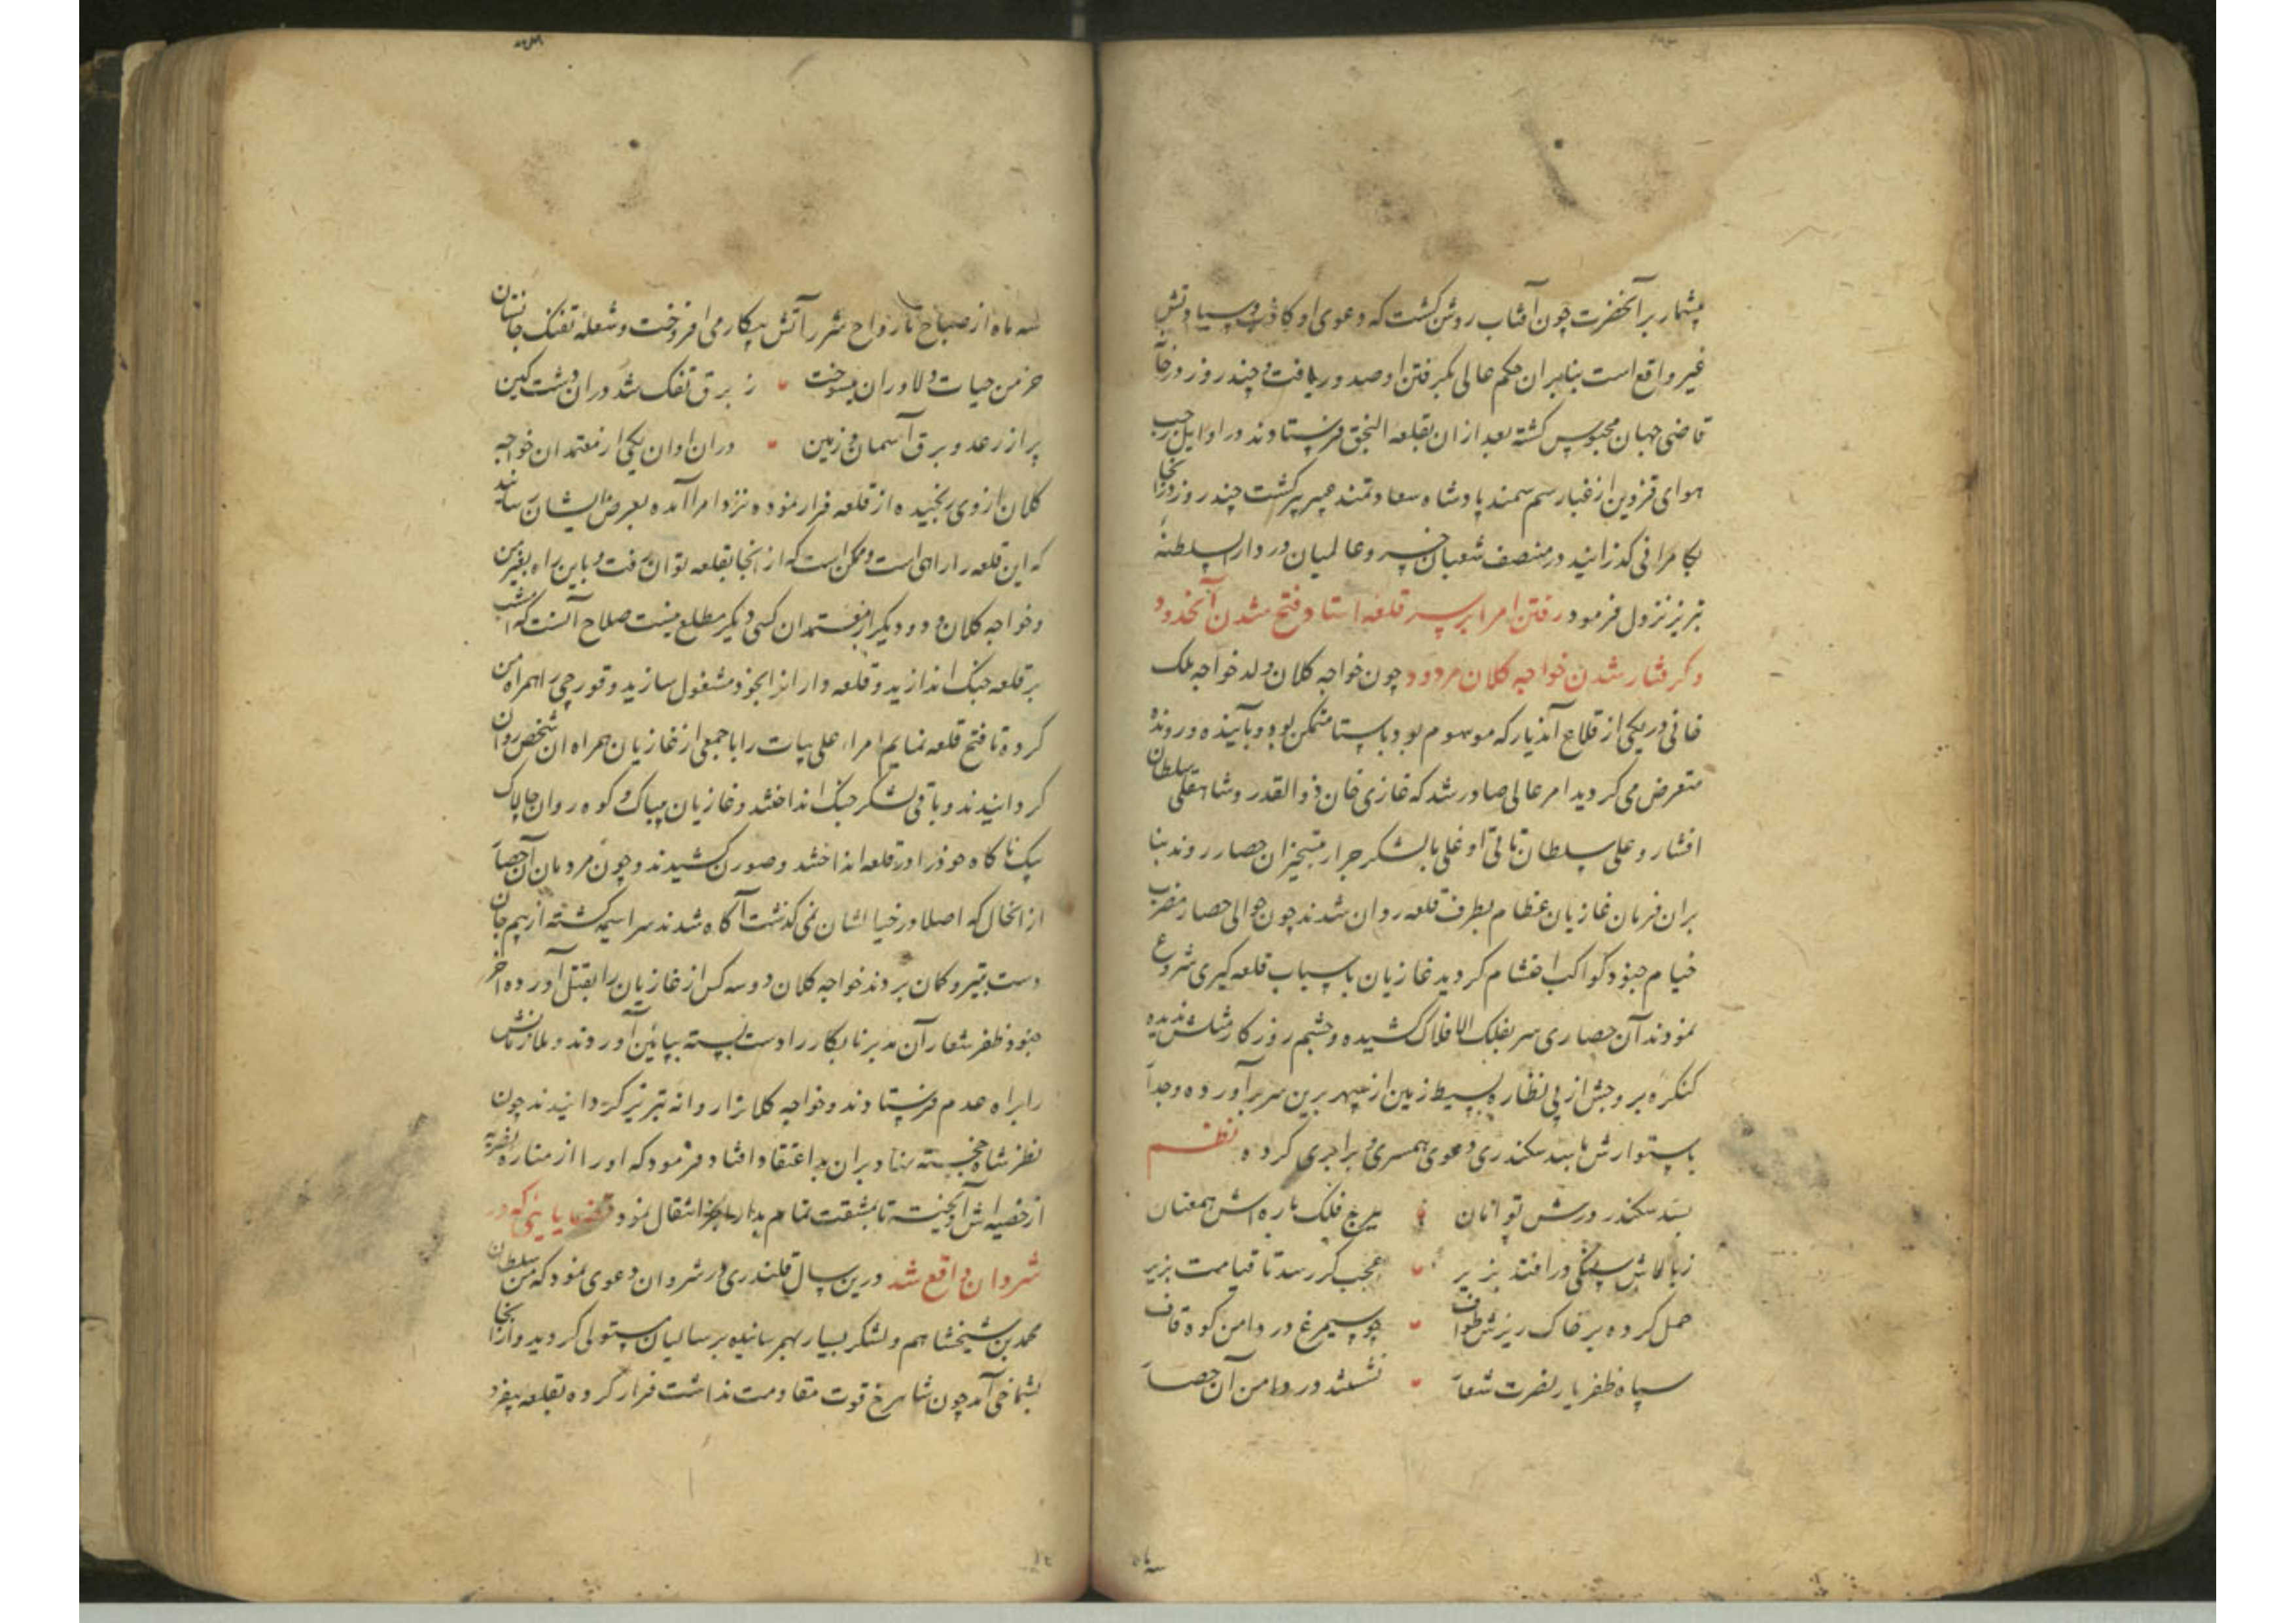 بیشمار بر آنحضرت چون آفتاب روشن گشت که دعوی او کاذب و سیادتش
غیر واقع است بنابران حکم عالی بگرفتن او صدور یافت و چند روز در خانه
قاضی جهان محبوس گشته بعد ازان بقلعه النجق فرستادند در اوایل رجب
هوای قزوین از غبار سم سمند پادشاه سعادتمند عبیر گشت چند روز در آنجا
بکامرانی گذرانید در منتصف شعبان خسرو عالمیان در دار السلطنهٔ
تبریز نزول فرمود رفتن امرا بر سر قلعه استا و فتح شدن آنحدود
و گرفتار شدن خواجه کلان مردود چون خواجه کلان ولد خواجه ملک
خافی در یکی از قلاع آندیار که موسوم بود باستا متمکن بود و بآینده و رونده
متعرض می گردید امر عالی صادر شد که غازی خان ذوالقدر و شاهقلی سلطان
افشار و علی سلطان تاتی اوغلی با لشکر جرار بتسخیر آن حصار روند بنا
بران فرمان غازیان عظام بطرف قلعه روان شدند چون حوالی حصار مضرب
خیام جنود کواکب احتشام گردید غازیان باسباب قلعه گیری شروع
نمودند آن حصاری سر بفلک الافلاک کشیده و چشم روزگار مثلش ندیده
کنکره بروجش از پی نظاره بسیط زمین از سپهر برین سر برآورده و جدار
باستوارش با سد سکندری دعوی همسری و برابری کرده نظم
بسد سکندر درش توامان بچرخ فلک باره اش همعنان
ز بالاش سنگی در افتد بزیر عجب گر رسد تا قیامت بزیر
حمل کرده بر خاک ریزش طواف چو سیمرغ در دامن کوه قاف
سپاه ظفریار نصرت شعار نشستند در دامن آن حصار
سه ماه از صباح تا رواح شرر آتش پیکار می افروخت و شعلهٔ تفنک جانستان
خرمن حیات دلاوران میسوخت ز برق تفک شد دران دشت کین
پر از رعد و برق آسمان و زمین دران اوان یکی از معتمدان خواجه
کلان از وی رنجیده از قلعه فرار نموده نزد امرا آمده بعرض ایشان رسانید
که این قلعه را راهی است و ممکن است که از آنجا بقلعه توان رفت و باین راه بغیر من
و خواجه کلان و دو دیگر از معتمدان کسی دیگر مطلع نیست صلاح آنست که امشب
بر قلعه جنک اندازید و قلعه داران را بخود مشغول سازید و قورچی را همراه من
کرده تا فتح قلعه نمایم امراء علی بیات را با جمعی از غازیان همراه آن شخص روان
گردانیدند و باقی لشکر جنک انداختند و غازیان بیباک و کوه روان چالاک
بیک ناگاه خود را در قلعه انداختند و صورن کشیدند و چون مردمان آن حصار
از انحال که اصلا در خیالشان نمی گذشت آگاه شدند سراسیمه گشته از بیم جان
دست بتیر و کمان بردند خواجه کلان دو سه کس از غازیان را بقتل آورده آخر
جنود ظفر شعار آن مدبر نابکار را دست بسته بپائین آوردند و ملازمانش
را براه عدم فرستادند و خواجه کلان را روانه تبریز گردانیدند چون
نظر شاه خجسته نهاد بران بد اعتقاد افتاد فرمود که او را از مناره نصریه
از خصیه اش آویخته تا بمشقت تمام بدار جزا انتقال نمود قضایایی که در
شروان واقع شد درین سال قلندری در شروان دعوی نمود که من سلطان
محمد بن شیخشاهم و لشکر بسیار بهم رسانیده بر سالیان مستولی گردید و از آنجا
بشماخی آمد چون شاهرخ قوت مقاومت نداشت فرار کرده بقلعه بیقرد